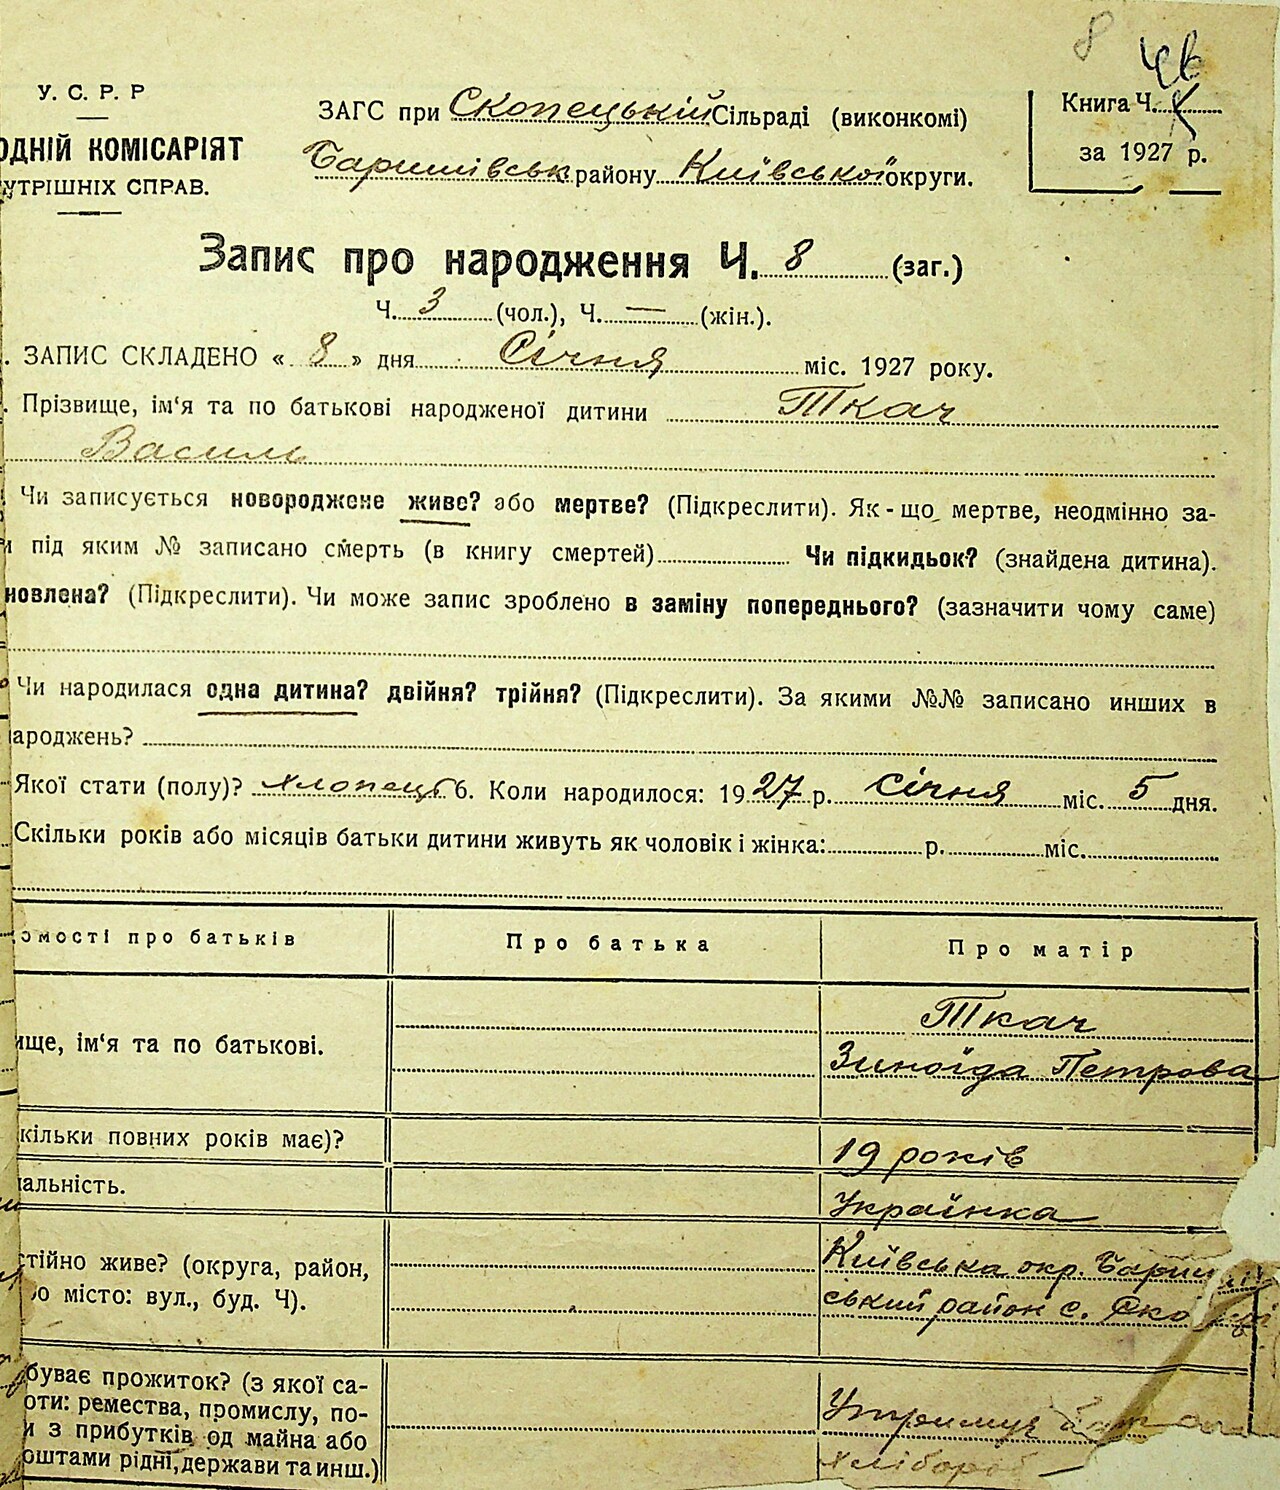 8 46
У. С. Р. Р
ОДНІЙ КОМІСАРІЯТ
УТРІШНІХ СПРАВ.
ЗАГС при Скопецькій Сільраді (виконкомі)
Баришівськ. району Київської округи.
Книга Ч.
за 1927 р.
Запис про народження Ч. 8 (заг.)
Ч. 3 (чол.), Ч. — (жін.).
. ЗАПИС СКЛАДЕНО « 8 » дня Січня міс. 1927 року.
. Прізвище, ім‘я та по батькові народженої дитини Ткач
Василь
Чи записується новороджене живе? або мертве? (Підкреслити). Як-що мертве, неодмінно за-
и під яким № записано смерть (в книгу смертей) Чи підкидьок? (знайдена дитина).
новлена? (Підкреслити). Чи може запис зроблено в заміну попереднього? (зазначити чому саме)
Чи народилася одна дитина? двійня? трійня? (Підкреслити). За якими №№ записано инших в
ароджень?
Якої стати (полу)? хлопець 6. Коли народилося: 1927 р. січня міс. 5 дня.
Скільки років або місяців батьки дитини живуть як чоловік і жінка: р. міс.
омості про батьків Про батька Про матір
ище, ім‘я та по батькові. Ткач
Зиноїда Петрова
кільки повних років має)? 19 років
альність. Українка
стійно живе? (округа, район, Київська окр. Бариш
о місто: вул., буд. Ч). ський район с. Ско
буває прожиток? (з якої са-
оти: ремества, промислу, по- Утримує
и з прибутків од майна або
оштами рідні, держави та инш.) хлібороб